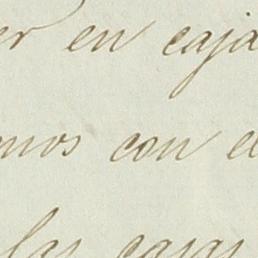 er en caja
mos con e
las casas